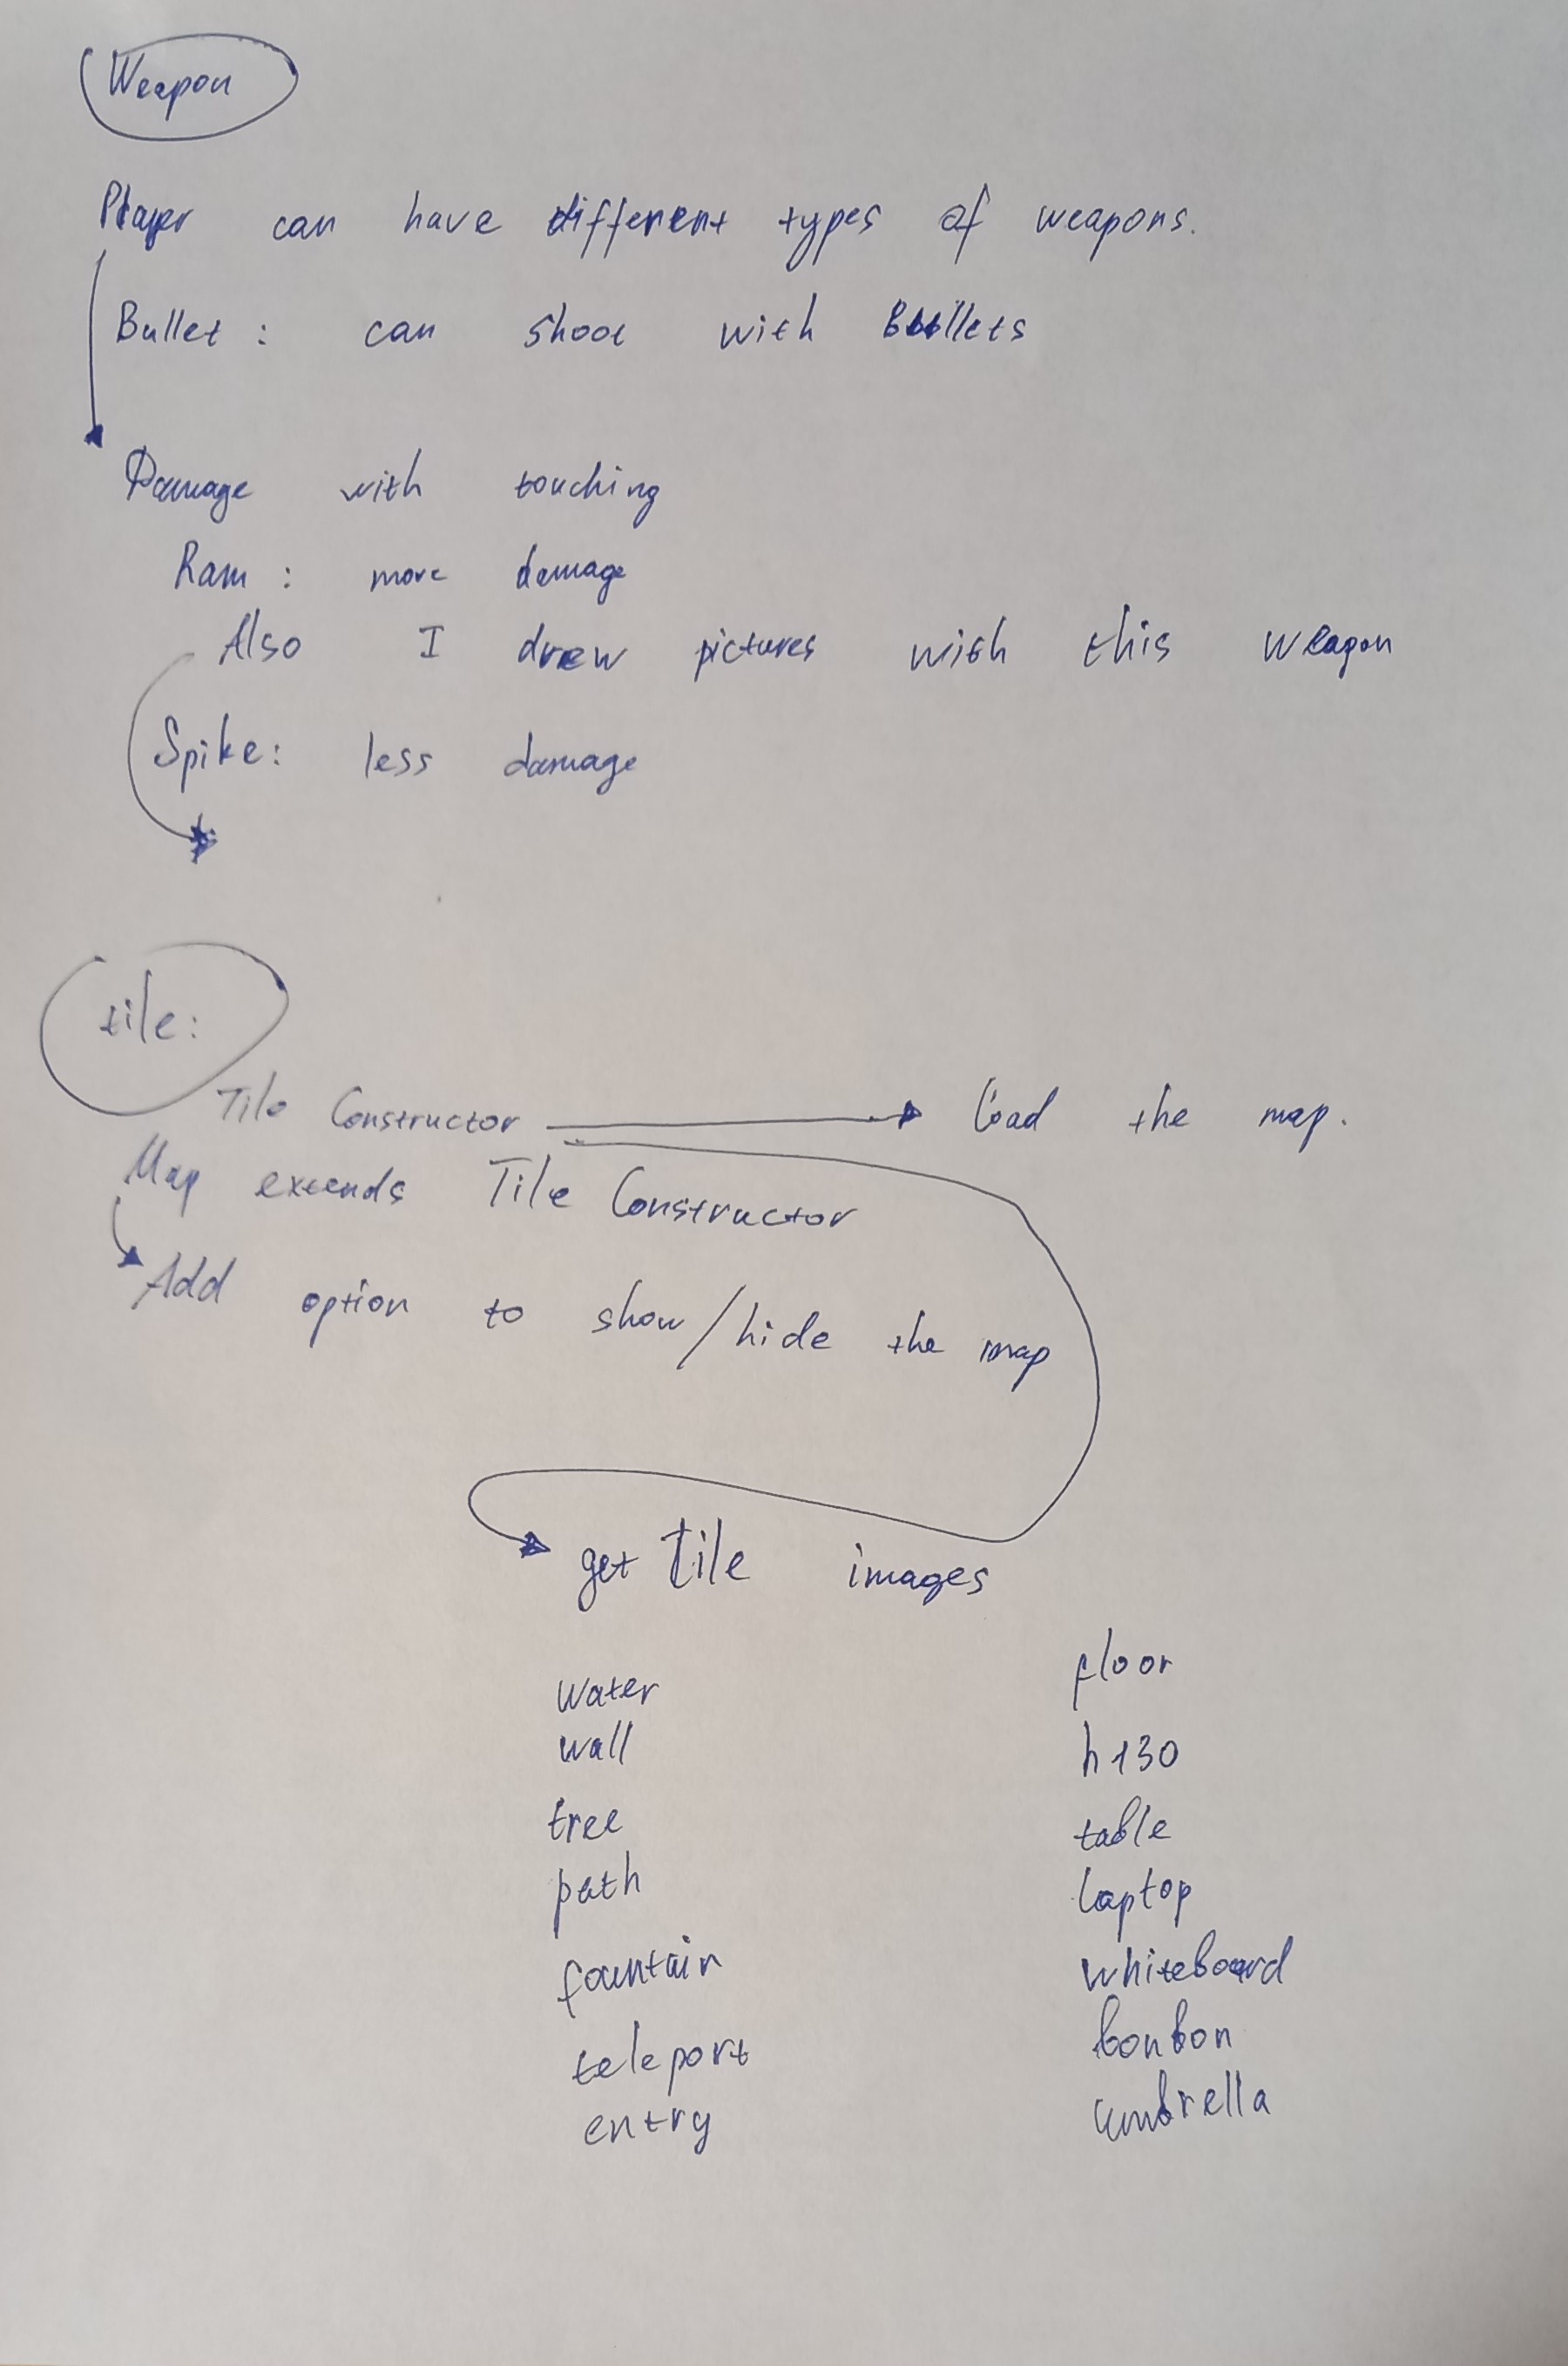 Weapon
Player can have different types of weapons.
Bullet : can shoot with Bullets
Damage with touching
Ram : more damage
Also I drew pictures with this weapon
Spike: less damage
tile:
Tile Constructor load the map.
Map extends Tile Constructor
Add option to show/hide the map
get Tile images
water floor
wall h130
tree table
path laptop
fountain whiteboard
teleport bonbon
entry umbrella